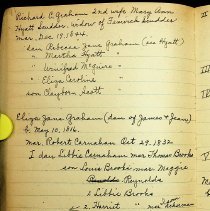 Richard C. Graham 2nd wife Mary Ann
Hyatt Scudder widow of Fenwick Scudder
Mar. Dec. 19, 1844.
dau Rebecca Jane Graham (see Hyatt)
" Martha Hyatt "
" Winifred McGuire "
" Eliza Caroline "
son Claybon Scott "
Eliza Jane Graham (dau of James & Jean)
b. May 10, 1816.
mar. Robert Carnahan Oct 29, 1832
1 dau Libbie Carnahan mar Thomas Brooks
son Louis Brooks mar. Maggie
Reynolds
1 Libbie Brooks
2. Harriet " mar
II
III
IV